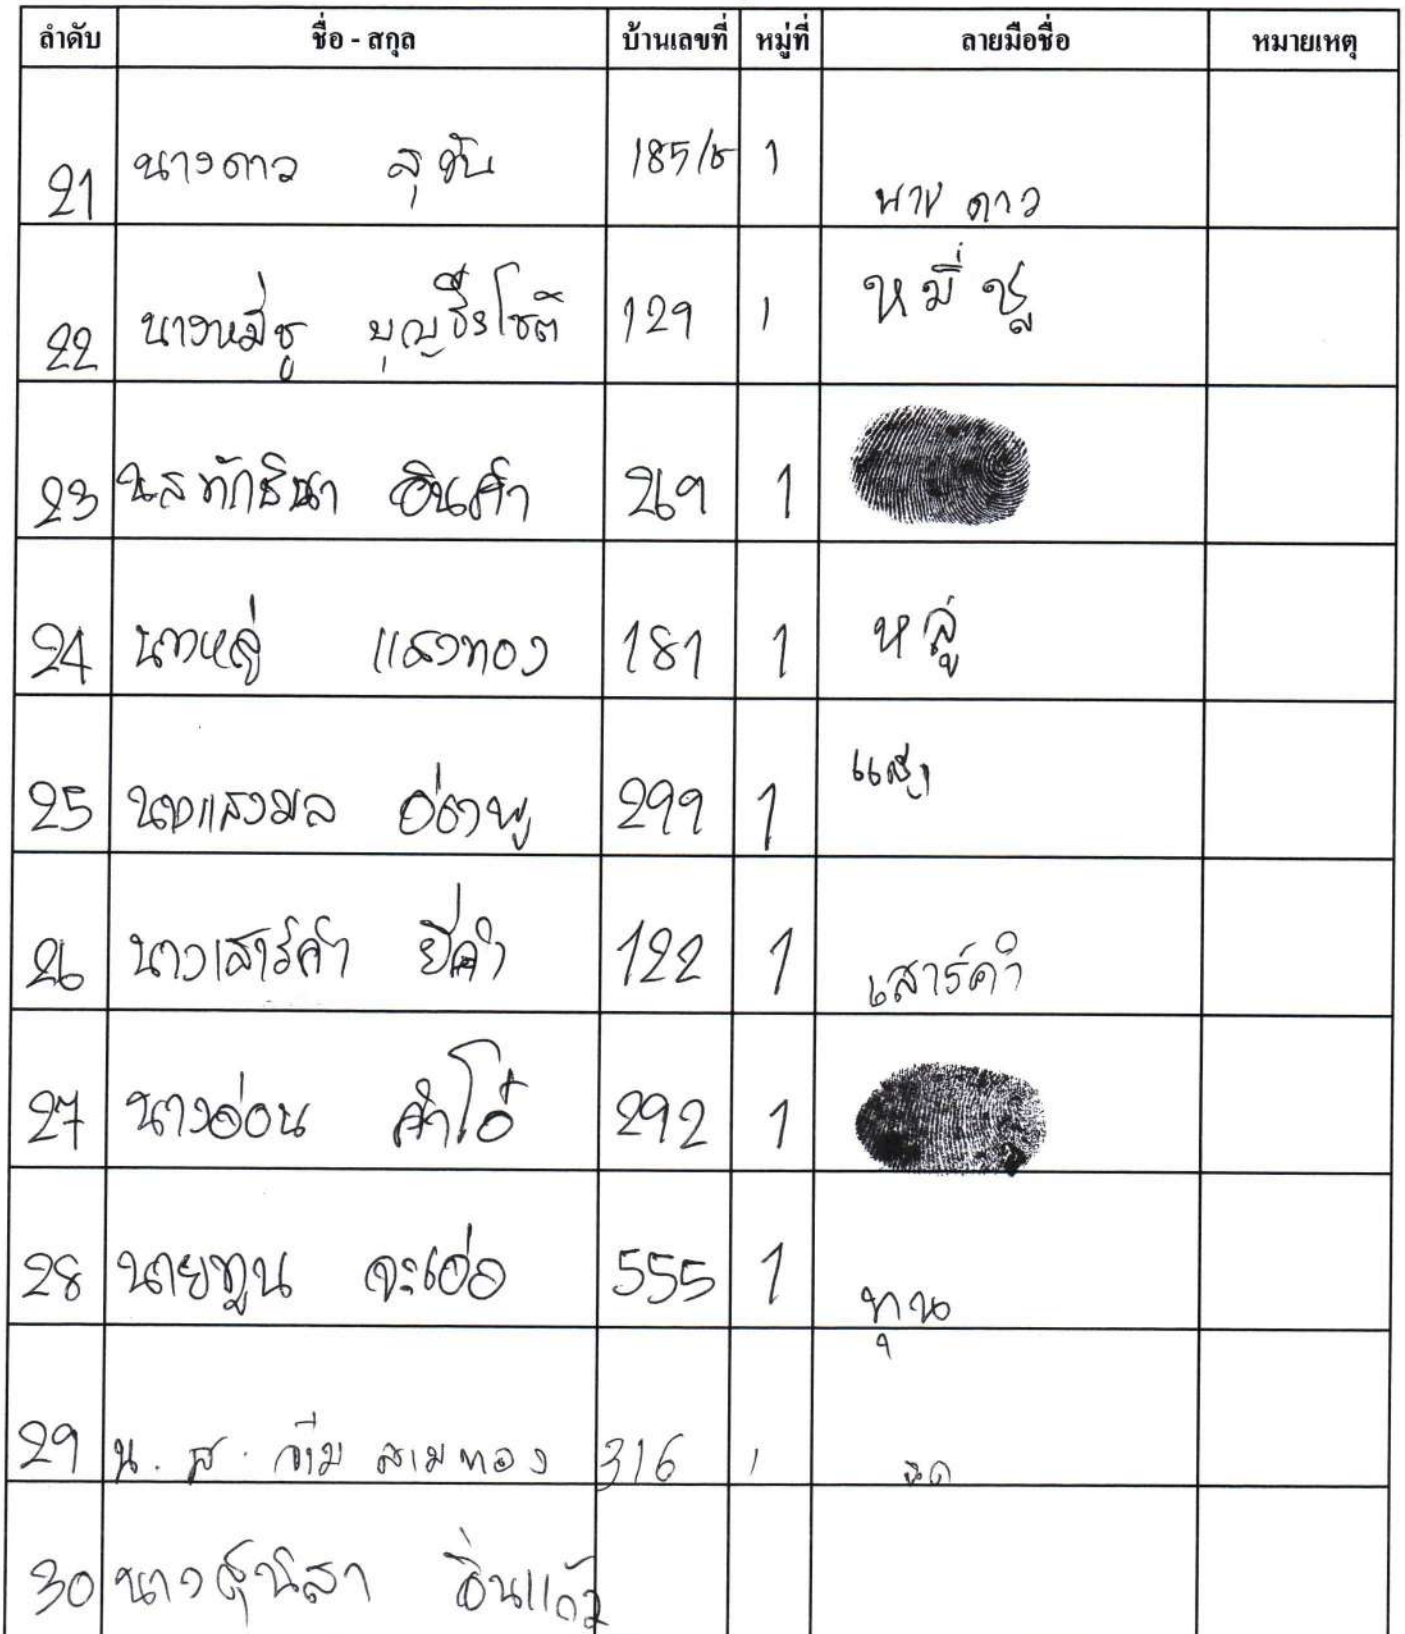 ลำดับ ชื่อ - สกุล บ้านเลขที่ หมู่ที่ ลายมือชื่อ หมายเหตุ
21 นางดาว สุ 185/ 1 นาง ดาว
22 นางหมี่ชู บุญธึรโชติ 129 1 หมี่ ชู
23 นส ทักธินา อินคำ 269 1
24 นางหลู่ แสงทอง 181 1 หลู่
25 นางแสงมล อ่องพู 299 1 แสง
26 นางเสาร์คำ ยี่คำ 122 1 เสาร์คำ
27 นางอ่อน คำโอ๋ 292 1
28 นายทูน จะเอ่อ 555 1 ทุน
29 น.ส. สามทอง 316 1
30 นางสุนิสา อิ่นแก้ว